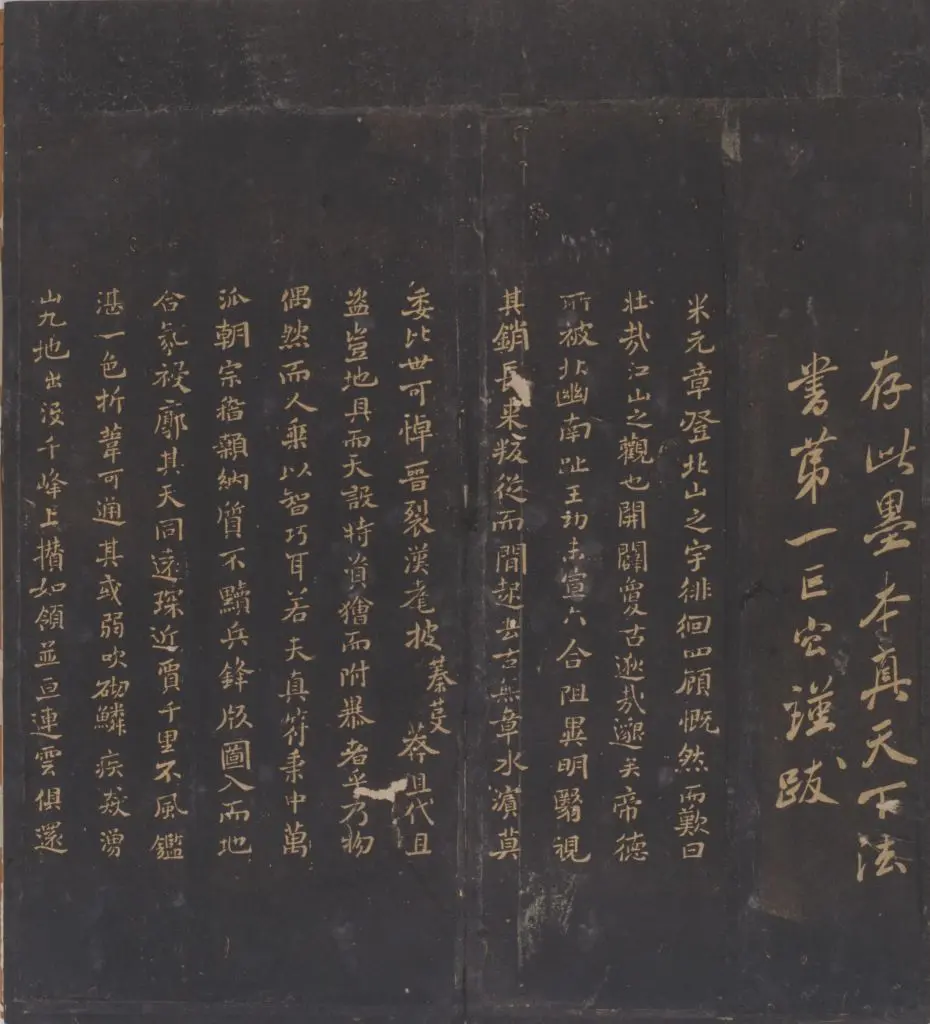 存此墨本真天下法
書第一臣必瑾跋
米元章登北山之宇徘徊四顧慨然而歎曰
壯哉江山之觀也開闢敻古逖哉邈矣帝德
所被北幽南趾王功未宣六合阻異明翳視
其銷長來叛從而間起去古無章水濱莫
委比世可悼晉裂漢耄披蓁芟莽俱代且
盜豈地具而天設特首獪而附暴者乎乃物
偶然而人乘以智巧耳若夫真符秉中萬
派朝宗稽顙納質不黷兵鋒版圖入而地
合氛祲廓其天同遠琛近賈千里不風鑑
湛一色折葦可通其或弱吹砌鱗疾飆湧
山九地出沒千峰上攢如領並亘連雲俱還